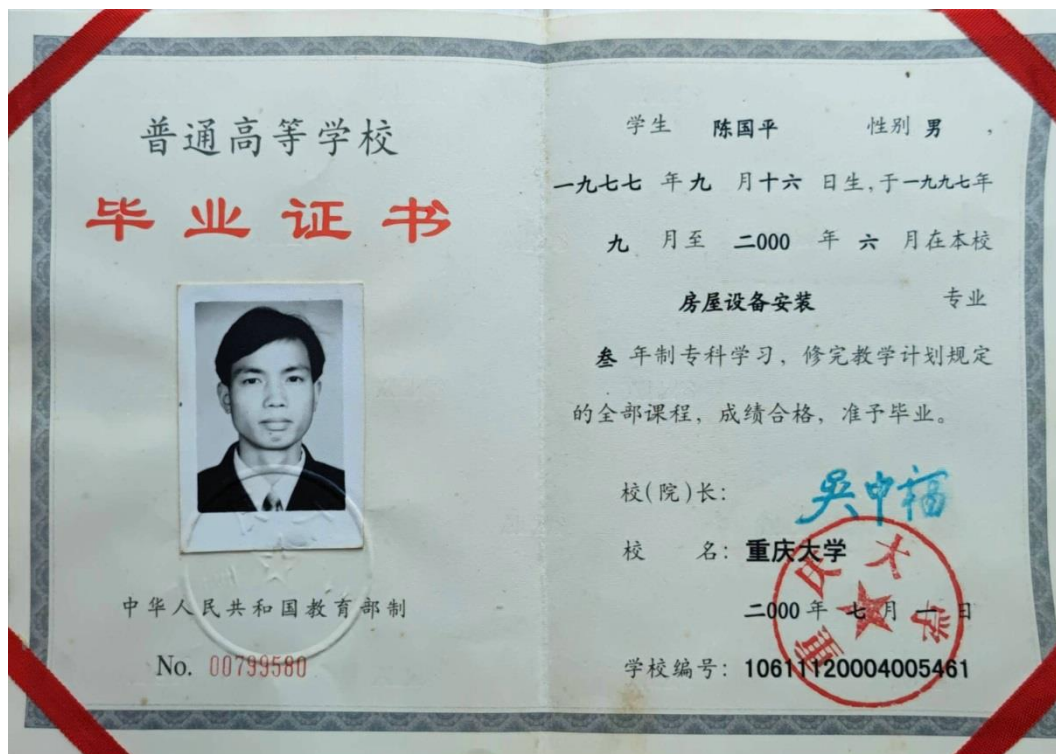 普通高等学校
毕业证书
中华人民共和国教育部制
No. 00799580
学生 陈国平 性别 男
一九七七 年 九 月 十六 日生,于一九九七年
九 月至 二000 年 六 月在本校
房屋设备安装 专业
叁 年制专科学习，修完教学计划规定
的全部课程，成绩合格，准予毕业。
校(院)长： 吴中福
校 名：重庆大学
二000年 七月 一日
学校编号：10611120004005461
重庆大学